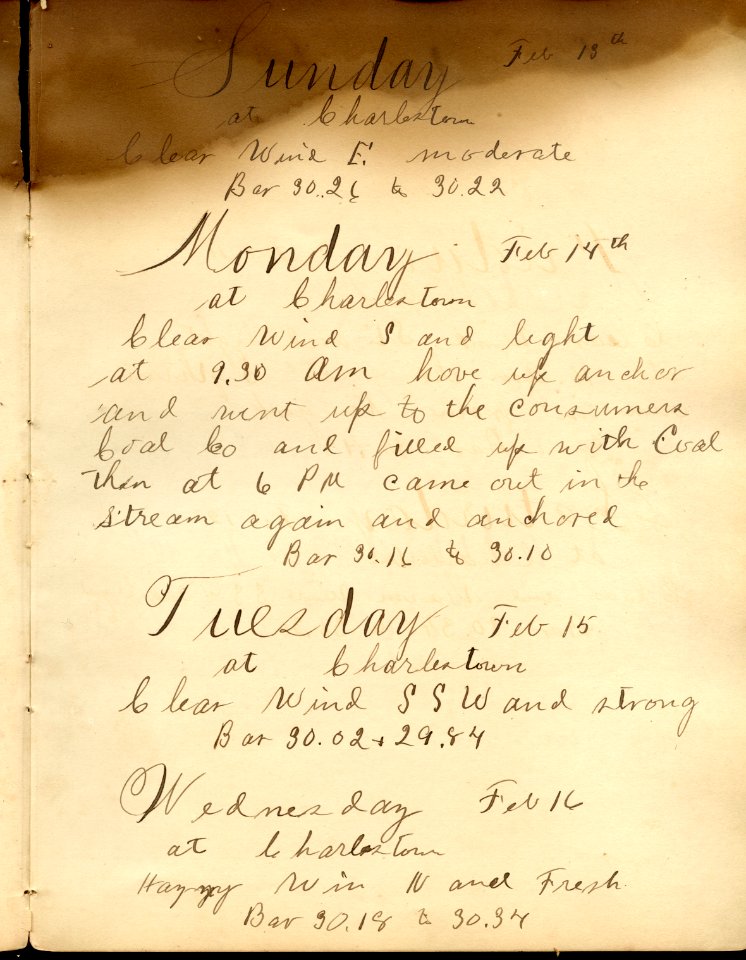 Sunday Feb 13th
at Charlestown
Clear Wind E. moderate
Bar 30.26 to 30.22
Monday Feb 14th
at Charlestown
Clear Wind S and light
at 9.30 Am hove up anchor
and went up to the Consumers
Coal Co and filled up with Coal
then at 6 PM came out in the
Stream again and anchored
Bar 30.16 to 30.10
Tuesday Feb 15
at Charlestown
Clear Wind S S W and strong
Bar 30.02 + 29.84
Wednesday Feb 16
at Charlestown
Win N and Fresh
Bar 30.18 to 30.34